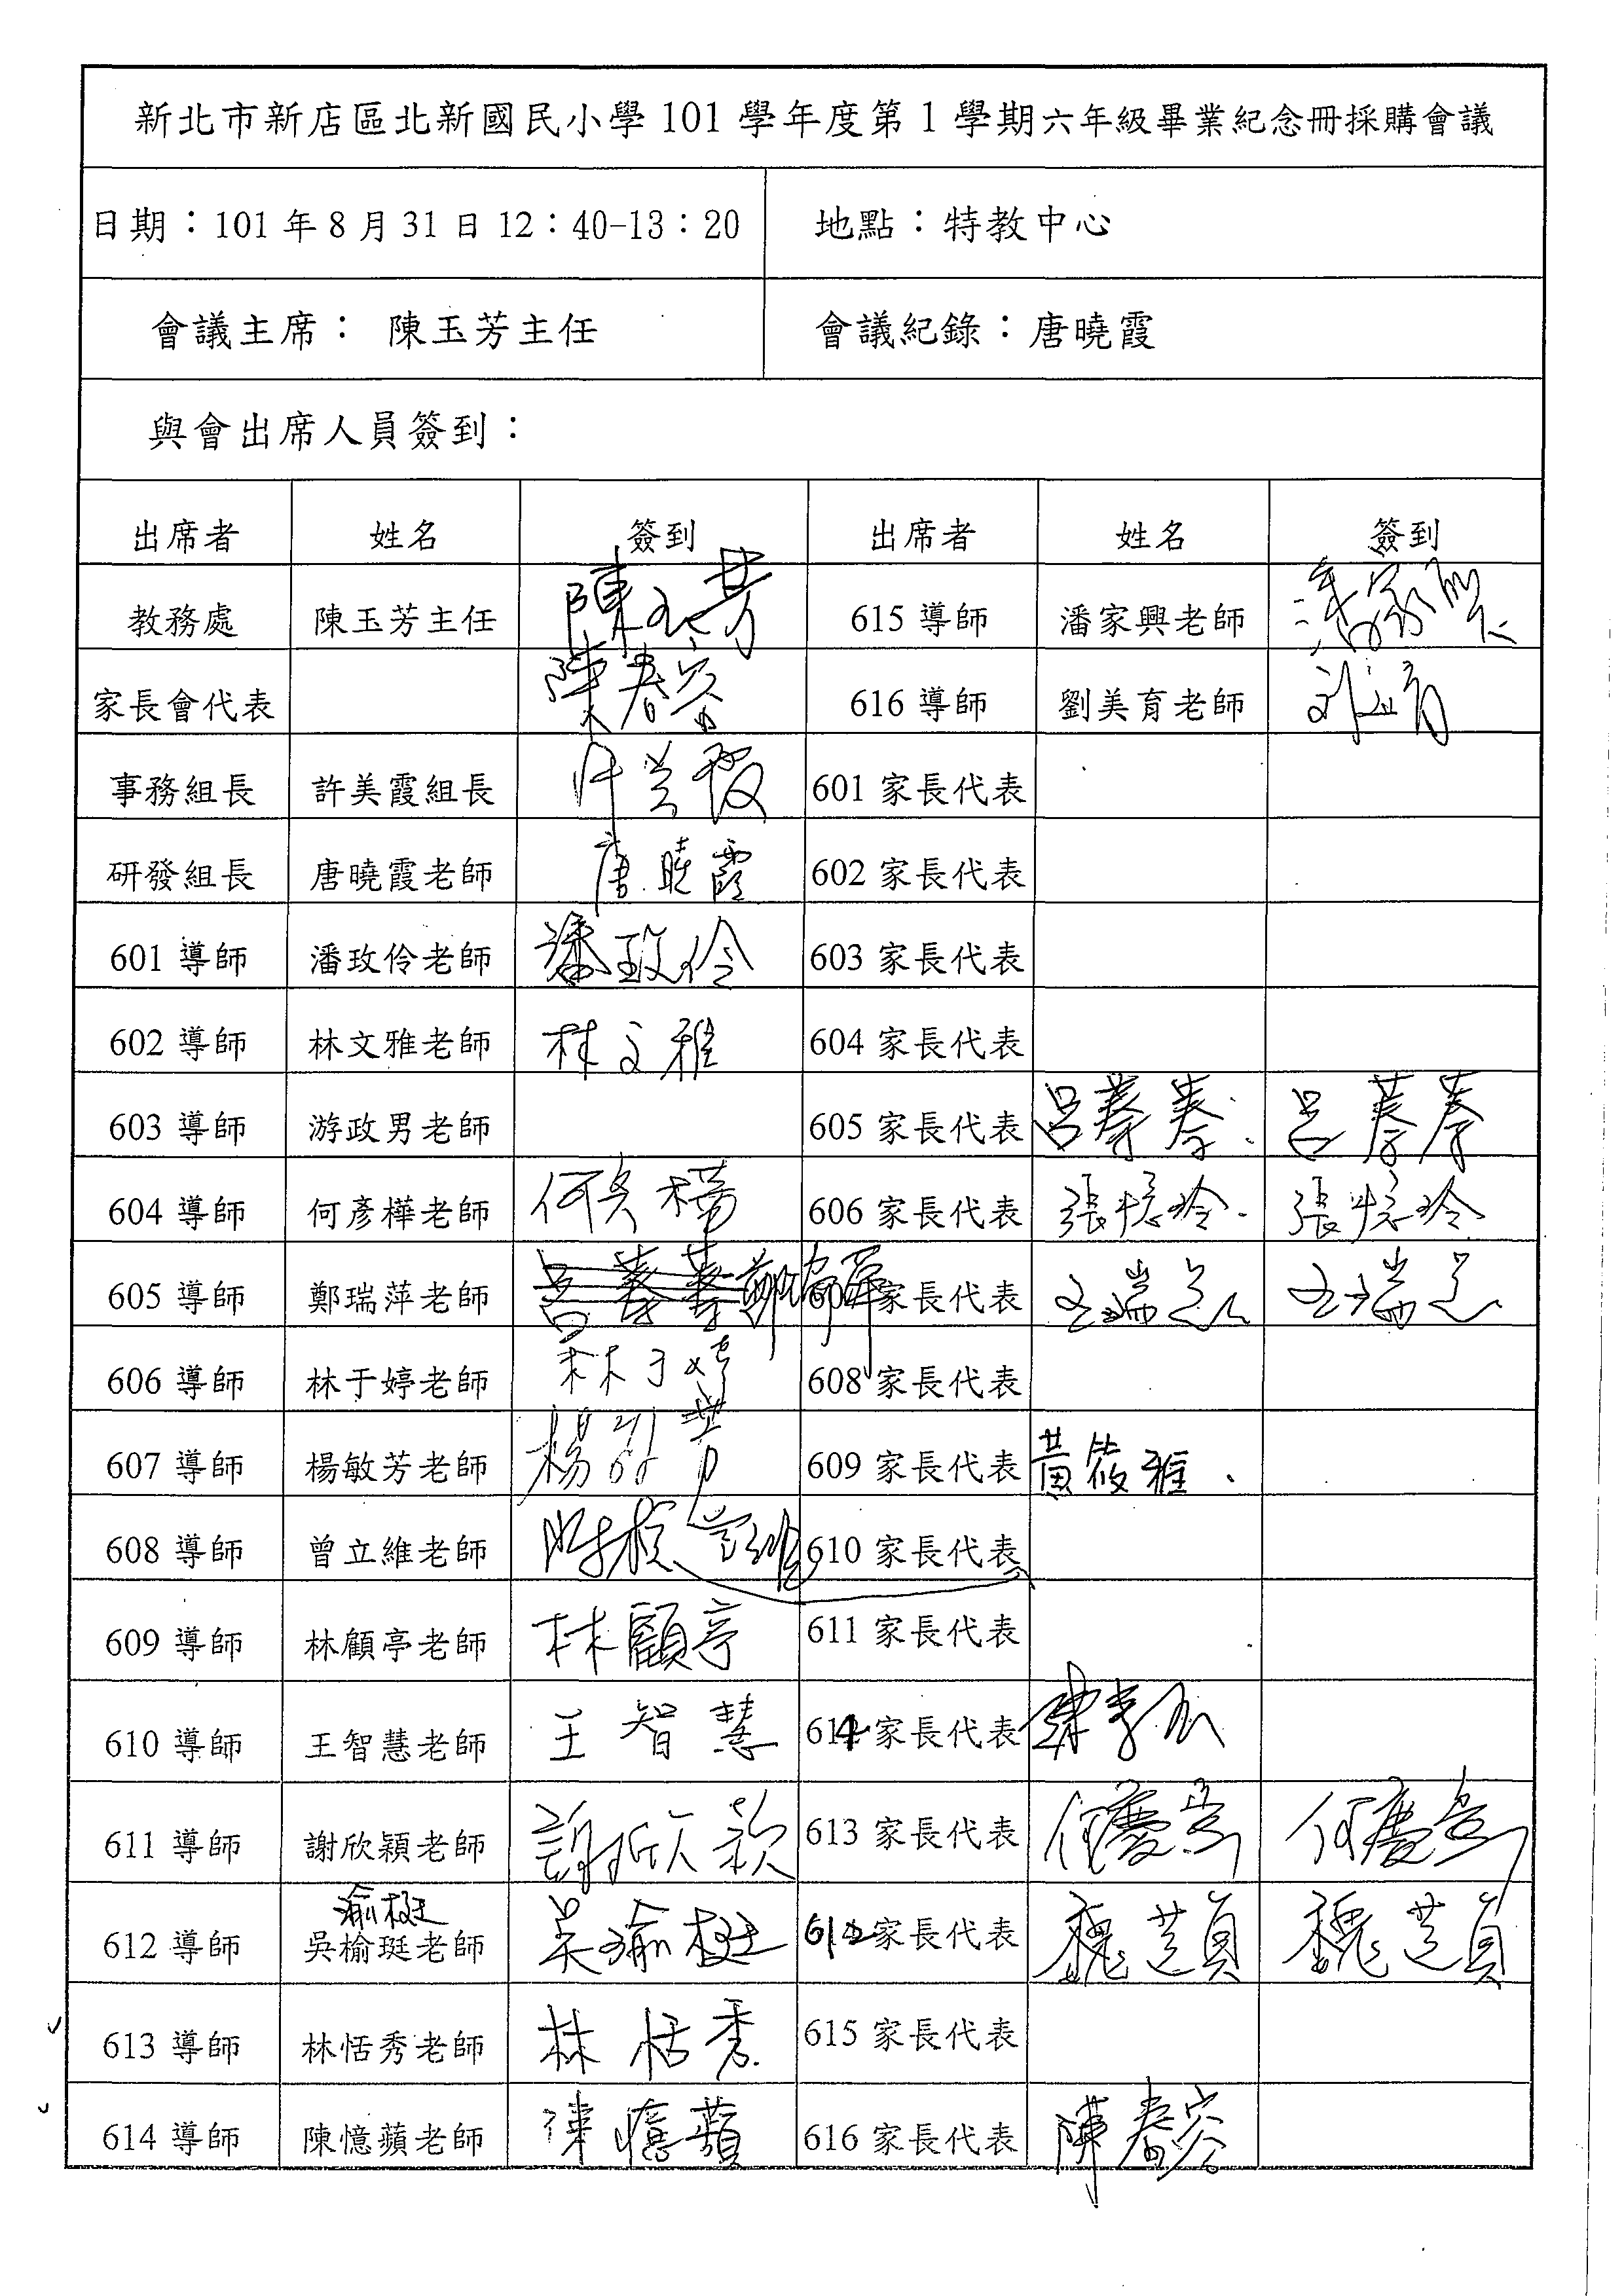 新北市新店區北新國民小學 101 學年度第 1 學期六年級畢業紀念冊採購會議
日期：101 年 8 月 31 日 12：40-13：20 地點：特教中心
會議主席： 陳玉芳主任 會議紀錄：唐曉霞
與會出席人員簽到：
出席者 姓名 簽到 出席者 姓名 簽到
教務處 陳玉芳主任 陳玉芳 615 導師 潘家興老師 潘家興
家長會代表 陳春容 616 導師 劉美育老師
事務組長 許美霞組長 許美霞 601 家長代表
研發組長 唐曉霞老師 唐曉霞 602 家長代表
601 導師 潘玫伶老師 潘玫伶 603 家長代表
602 導師 林文雅老師 林文雅 604 家長代表
603 導師 游政男老師 605 家長代表 呂蓁蓁 呂蓁蓁
604 導師 何彥樺老師 何彥樺 606 家長代表
605 導師 鄭瑞萍老師 呂蓁蓁 鄭瑞萍 607 家長代表
606 導師 林于婷老師 林于婷 608 家長代表
607 導師 楊敏芳老師 楊敏芳 609 家長代表 黃筱雅
608 導師 曾立維老師 610 家長代表
609 導師 林顧亭老師 林顧亭 611 家長代表
610 導師 王智慧老師 王智慧 614 家長代表
611 導師 謝欣穎老師 謝欣穎 613 家長代表
瑜梃
612 導師 吳榆珽老師 吳瑜梃 612 家長代表 魏芝貞 魏芝貞
613 導師 林恬秀老師 林恬秀 615 家長代表
614 導師 陳憶蘋老師 陳憶蘋 616 家長代表 陳春容